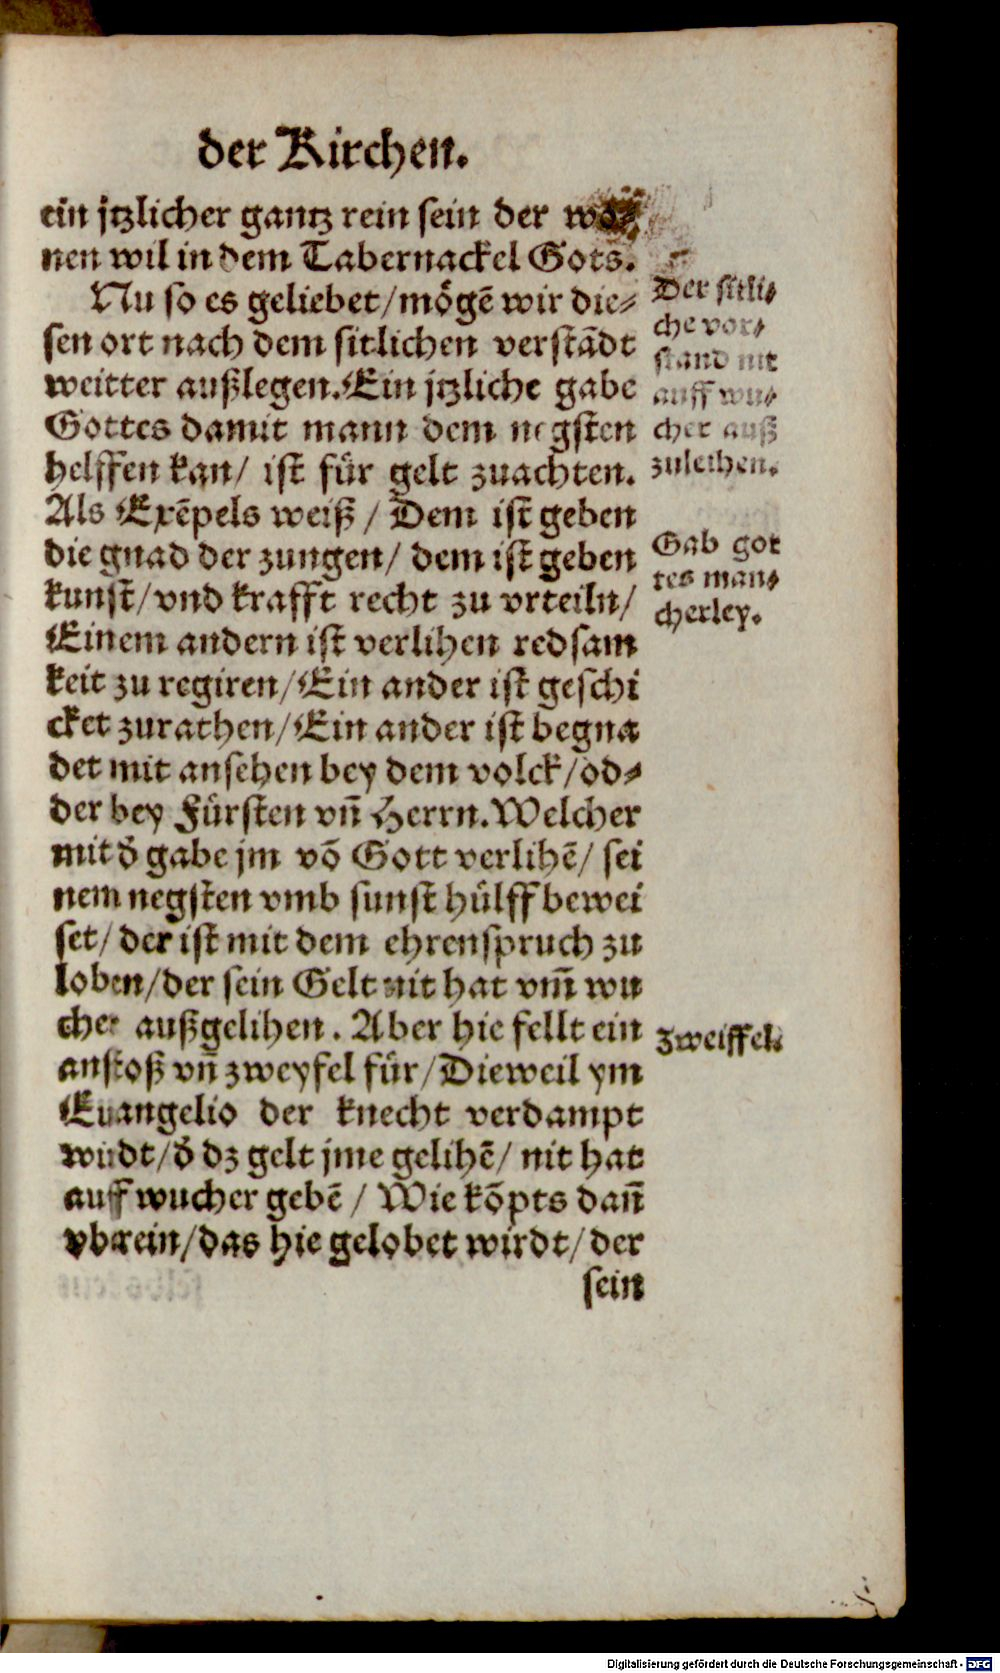 der Kirchen.
ein jtzlicher gantz rein sein der wo⸗
nen wil in dem Tabernackel Gots.
Nu so es geliebet/mögē wir die⸗
sen ort nach dem sitlichen verstādt
weitter außlegen.Ein jtzliche gabe
Gottes damit mann dem negsten
helffen kan/ ist für gelt zuachten.
Als Exēpels weiß / Dem ist geben
die gnad der zungen/ dem ist geben
kunst/vnd krafft recht zu vrteiln/
Einem andern ist verlihen redsam
keit zu regiren/Ein ander ist geschi
cket zurathen/Ein ander ist begna
det mit ansehen bey dem volck/od⸗
der bey Fürsten vn̄ Herrn.Welcher
mit d̄ gabe jm vō Gott verlihē/ sei
nem negsten vmb sunst hülff bewei
set/ der ist mit dem ehrenspruch zu
loben/der sein Gelt nit hat vm̄ wu
cher außgelihen. Aber hie fellt ein
anstoß vn̄ zweyfel für/Dieweil ym
Euangelio der knecht verdampt
wirdt/d̄ dz gelt jme gelihē/ nit hat
auff wucher gebē / Wie kōpts dan̄
vberein/das hie gelobet wirdt/der
sein
Der sitli⸗
che vor⸗
stand nit
auff wu⸗
cher auß
zuleihen.
Gab got
tes man⸗
cherley.
Zweiffel.
Digitalisierung gefördert durch die Deutsche Forschungsgemeinschaft - DFG